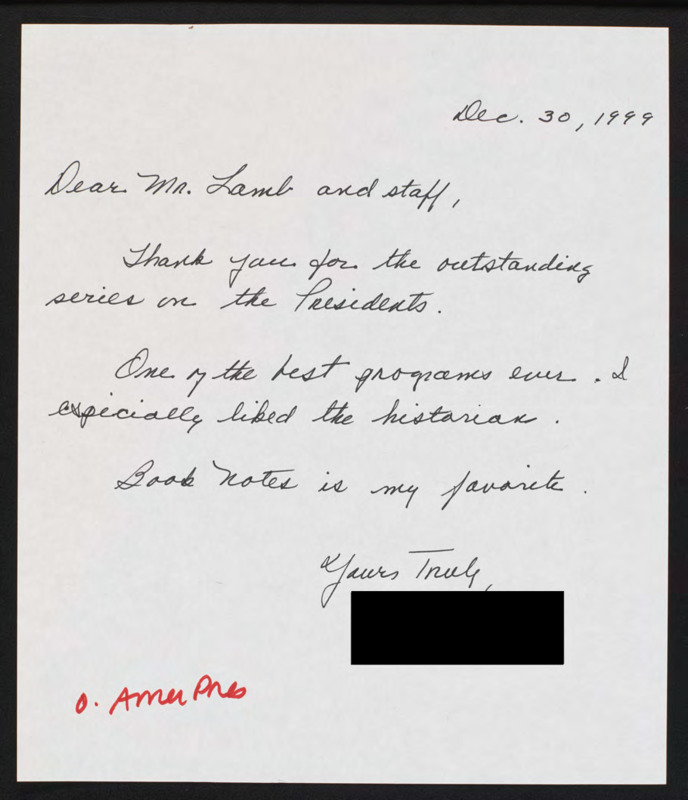 Dec. 30, 1999
Dear Mr. Lamb and staff,
Thank you for the outstanding
series on the Presidents.
One of the best programs ever. I
especially liked the historian.
Book Notes is my favorite.
Yours Truly,
O. Amer Pres